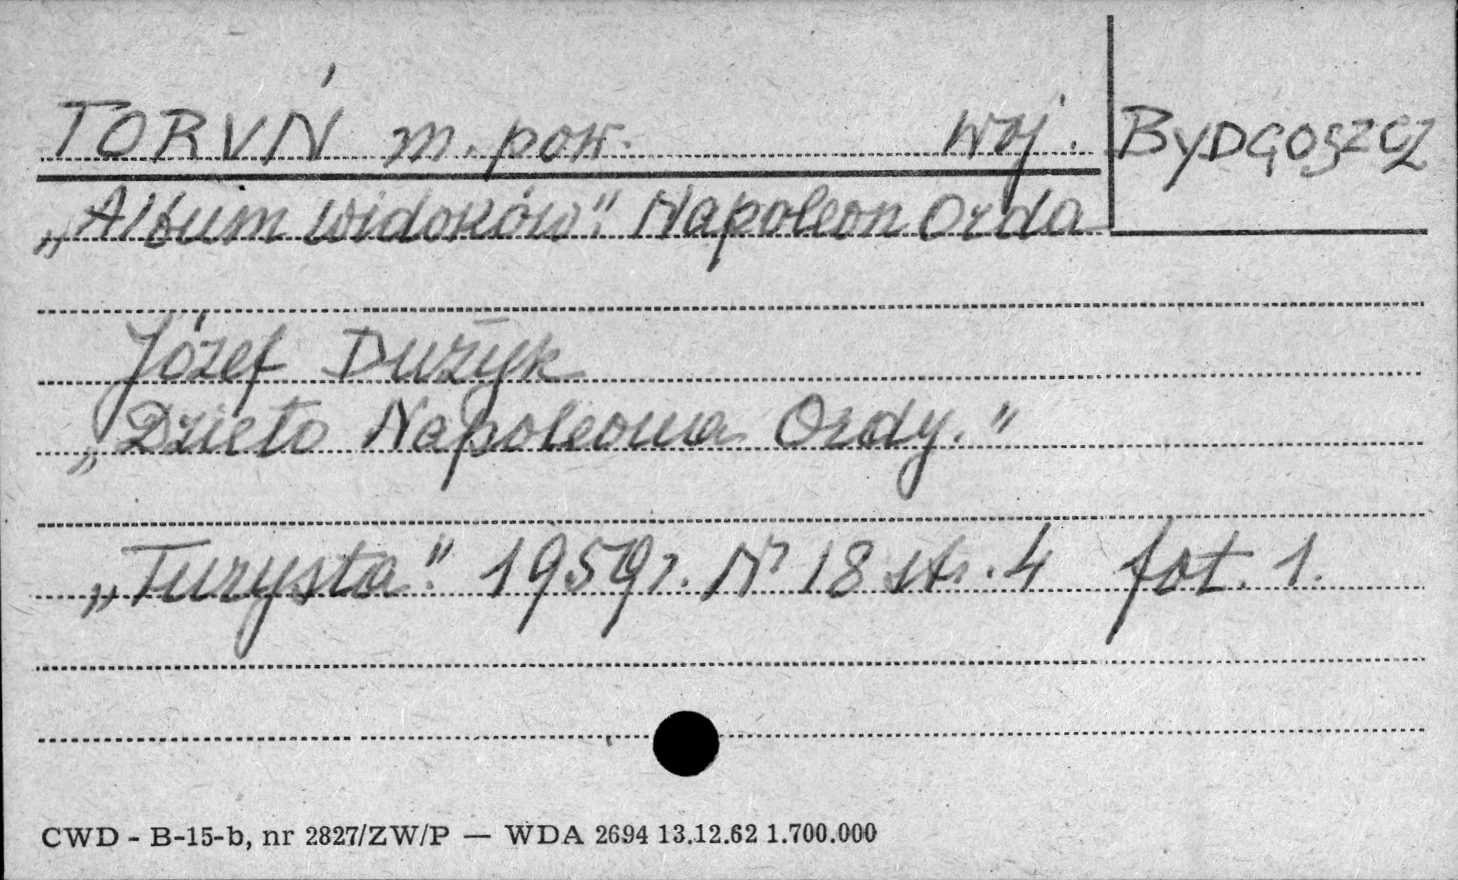 TORUŃ m. pow. woj. BYDGOSZCZ
„Album widoków". Napoleon Orda
Józef Dużyk
„Dzieło Napoleona Ordy."
„Turysta". 1959 r. Nr 18 str. 4 fot. 1.
CWD - B-15-b, nr 2827/ZW/P — WDA 2694 13.12.62 1.700.000